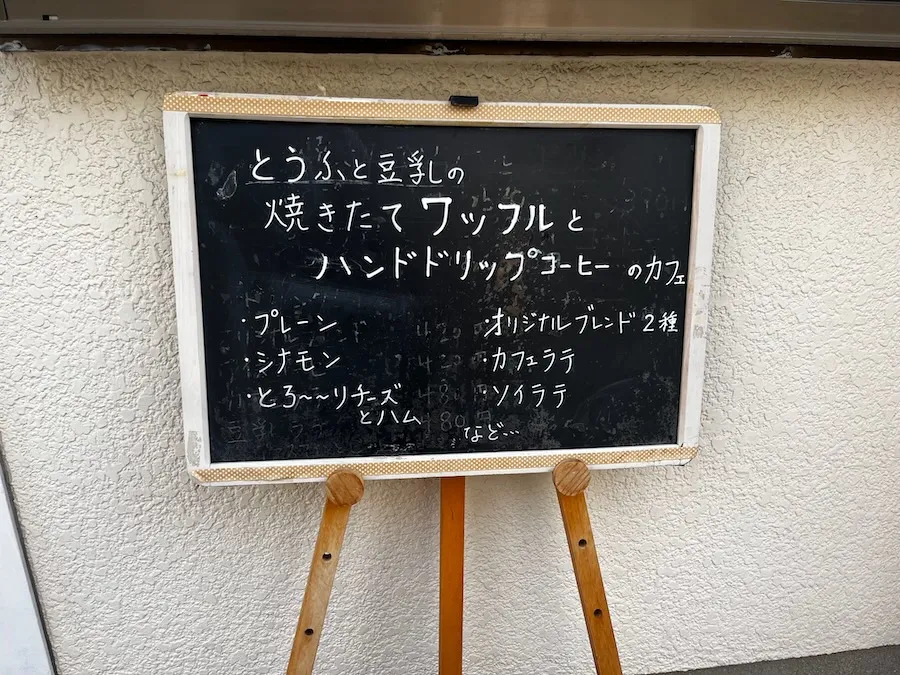 とうふと豆乳の
焼きたてワッフルと
ハンドドリップコーヒーのカフェ
・プレーン
・シナモン
・とろ〜〜リチーズ
とハム
・オリジナルブレンド2種
・カフェラテ
・ソイラテ
など…